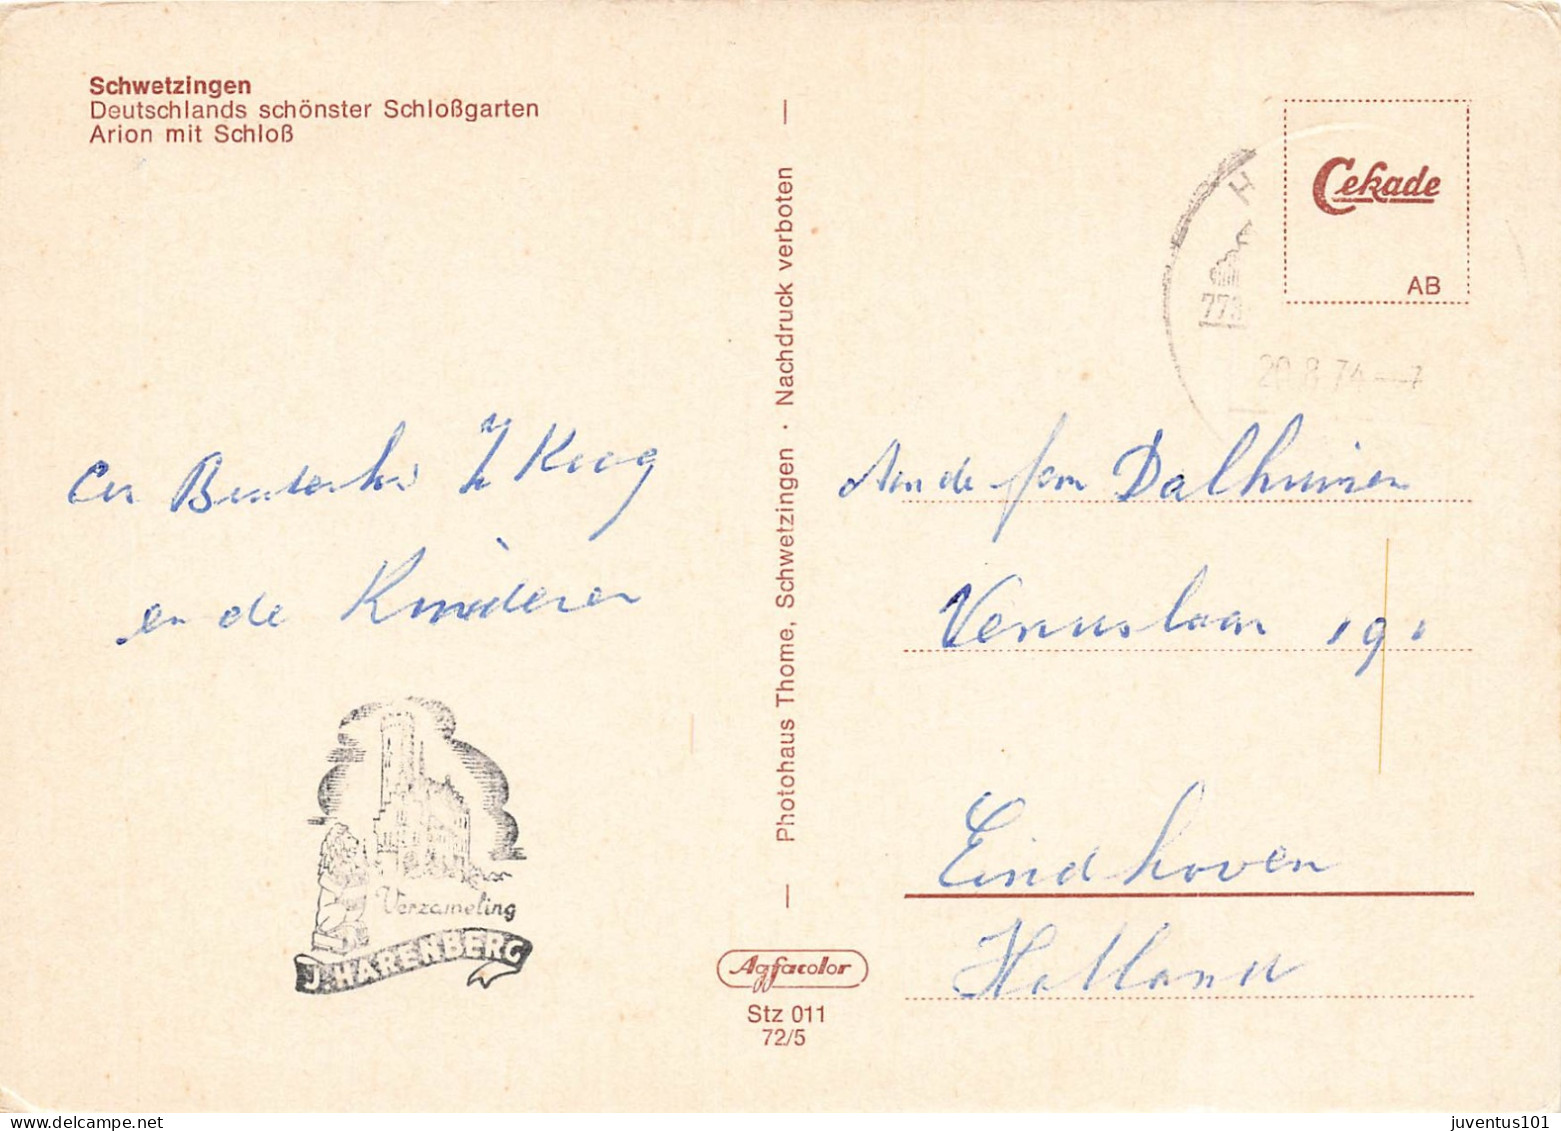 Schwetzingen
Deutschlands schönster Schloßgarten
Arion mit Schloß
Cekade
AB
H
773
20.8.74--7
Photohaus Thome, Schwetzingen · Nachdruck verboten
en de Kinderen
Aan de fam Dalhuisen
Venuslaan 191
Eindhoven
Holland
Verzameling
J. HARENBERG
Agfacolor
Stz 011
72/5
juventus101